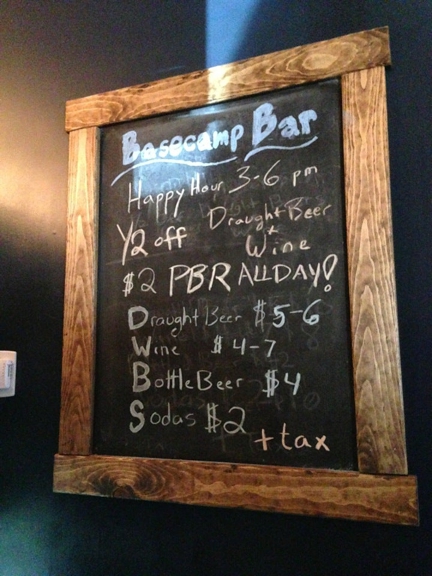 Basecamp Bar
Happy Hour 3-6 pm
1/2 off Draught Beer
+
Wine
$2 PBR ALL DAY!
Draught Beer $5-6
Wine $4-7
Bottle Beer $4
Sodas $2
+ tax